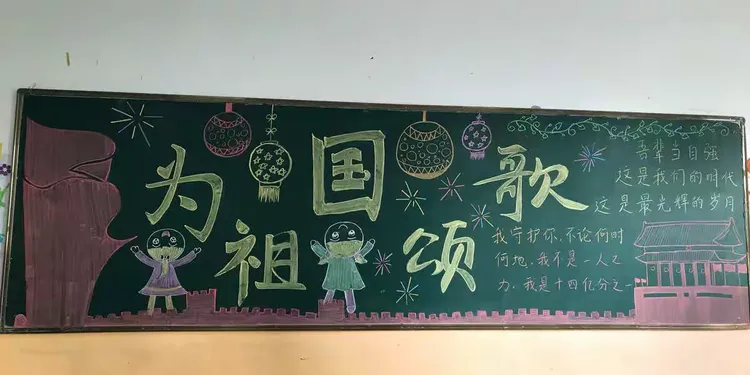 为祖国颂歌
吾辈当自强
这是我们的时代
这是最光辉的岁月
我守护你,不论何时
何地,我不是一人之
力,我是十四亿分之一